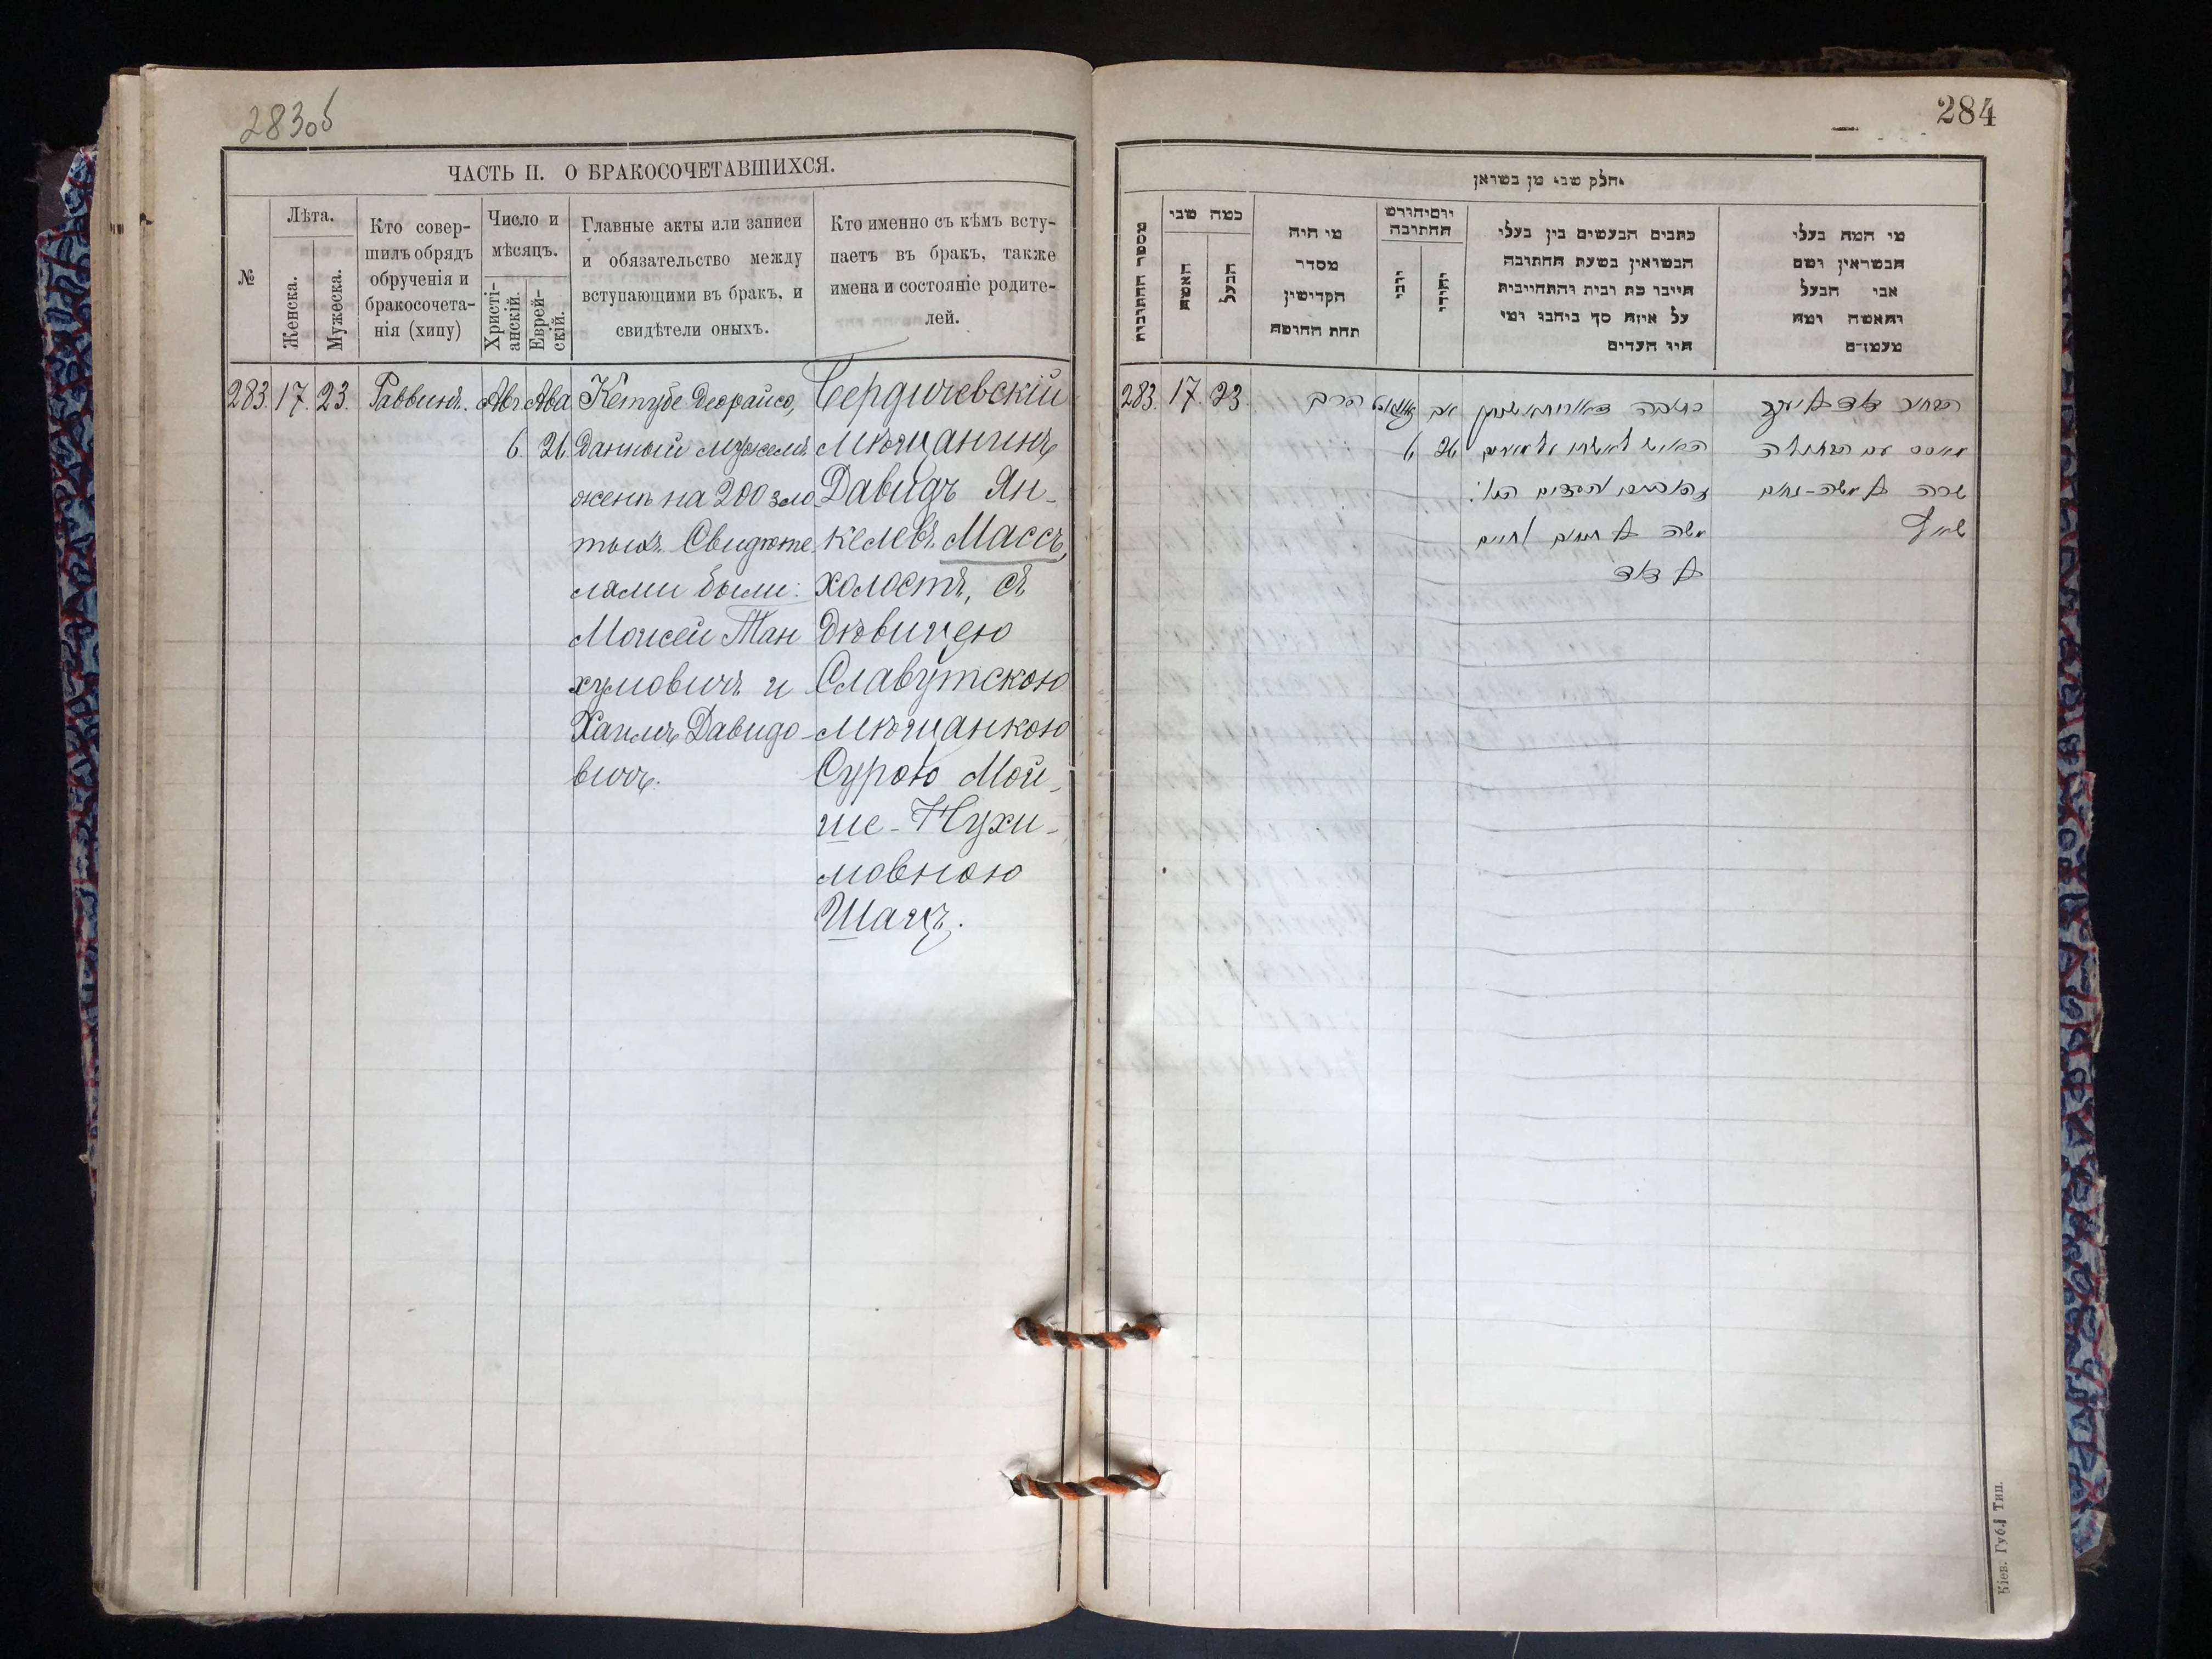 283об
ЧАСТЬ II. О БРАКОСОЧЕТАВШИХСЯ.
№
Лѣта.
Женска.
Мужеска.
Кто совер-
шилъ обрядъ
обрученія и
бракосочета-
нія (хипу)
Число и
мѣсяцъ.
Христі-
анскій.
Еврей-
скій.
Главные акты или записи
и обязательство между
вступающими въ бракъ, и
свидѣтели оныхъ.
Кто именно съ кѣмъ всту-
паетъ въ бракъ, также
имена и состояніе родите-
лей.
283. 17. 23. Раввинъ. Авг Ава
6. 26
Кетубе Деорайсо,
данный мужемъ
женѣ на 200 зло
тыхъ. Свидѣте
лями были:
Моисей Тан
хумовичъ и
Хаимъ Давидо-
вичъ.
Бердичевскій
мѣщанинъ
Давидъ Ян-
келевъ Массъ,
холостъ, съ
дѣвицею
Славутскою
мѣщанкою
Сурою Мой-
ше-Нухи-
мовною
Шацъ.
284
חלק שני מן בשואין
מספר החתונות
כמה שני
האשה
הבעל
מי היה
מסדר
הקדישין
תחת החופה
יום יחודש
החתונה
יוני
יהודי
כתבים הנעשים בין בעלי
הנשואין בשעת החתונה
על איזה סך ביחבו ומי
היו העדים
מי המה בעלי
הנשואין ושם
אבי הבעל
והאשה ומה
מעמדם
283. 17. 23. הרב
6 26 אב
כתובה דאורייתא
משה ב תנחום וחיים
ב דוד
הבחור דוד ב יעקב
מאסס עם הבתולה
שרה ב משה-נחום
שאץ
Кіев. Губ. Тип.